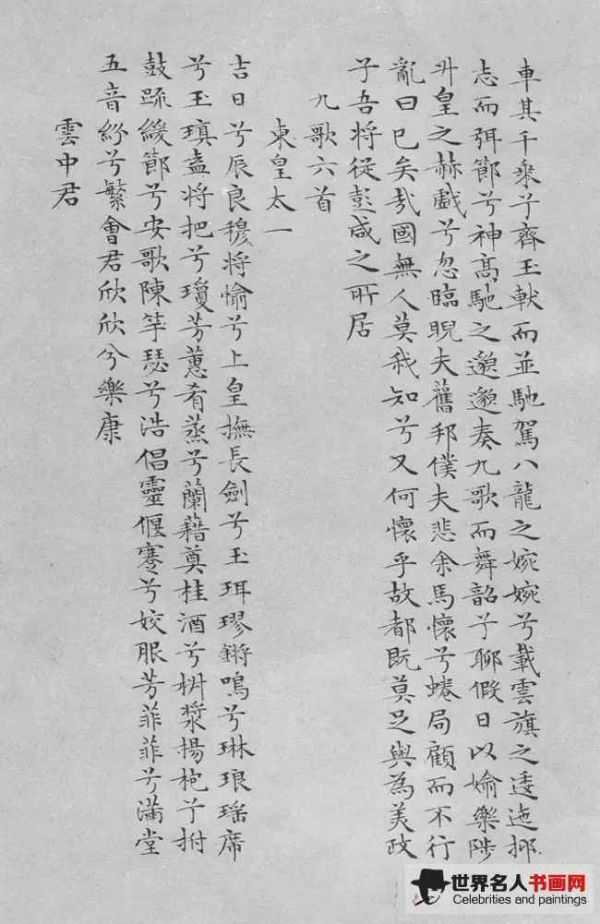 車其千乘兮齊玉軑而並馳駕八龍之婉婉兮載雲旗之逶迤抑
志而弭節兮神高馳之邈邈奏九歌而舞韶兮聊假日以婾樂陟
升皇之赫戲兮忽臨睨夫舊邦僕夫悲余馬懷兮蜷局顧而不行
亂曰已矣哉國無人莫我知兮又何懷乎故都既莫足與為美政
子吾將從彭咸之所居
九歌六首
東皇太一
吉日兮辰良穆將愉兮上皇撫長劍兮玉珥璆鏘鳴兮琳琅瑤席
兮玉瑱盍將把兮瓊芳蕙肴蒸兮蘭藉奠桂酒兮椒漿揚枹兮拊
鼓疏緩節兮安歌陳竽瑟兮浩倡靈偃蹇兮姣服芳菲菲兮滿堂
五音紛兮繁會君欣欣兮樂康
雲中君
世界名人书画网
Celebrities and paintings